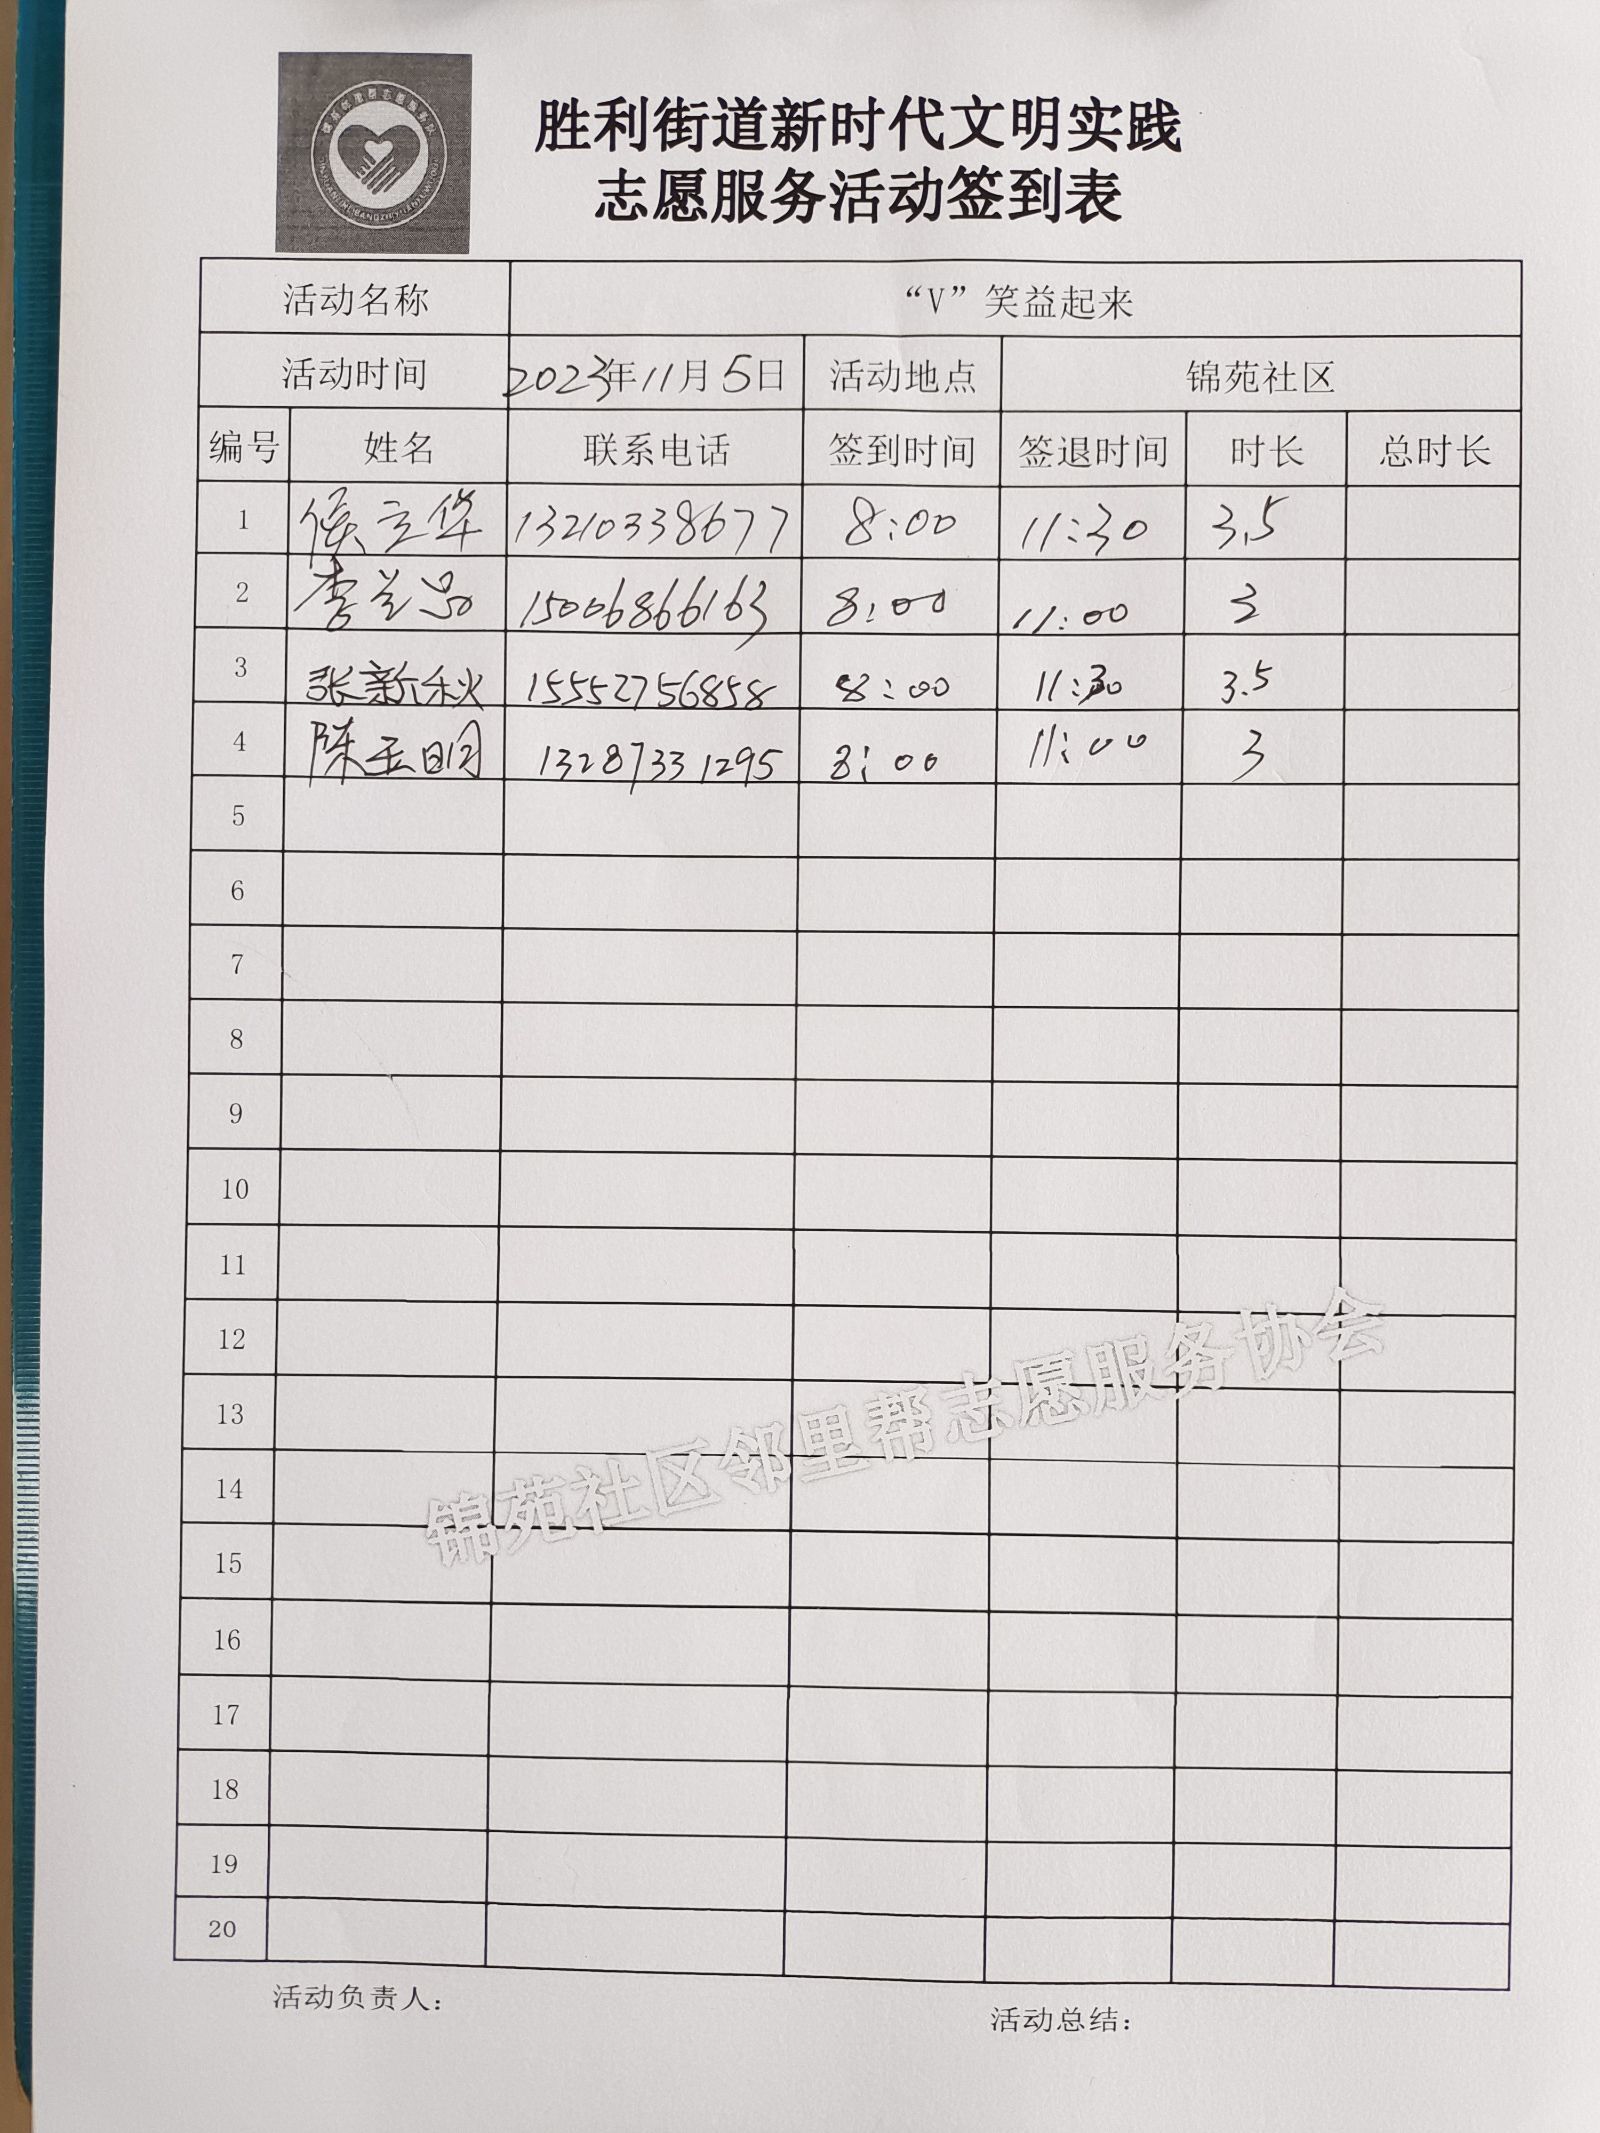 胜利街道新时代文明实践
志愿服务活动签到表
活动名称 “V”笑益起来
活动时间 2023年11月5日 活动地点 锦苑社区
编号 姓名 联系电话 签到时间 签退时间 时长 总时长
1 侯立华 13210338677 8:00 11:30 3.5
2 李兰 15006866163 8:00 11:00 3
3 张新秋 15552756858 8:00 11:30 3.5
4 陈玉明 13287331295 8:00 11:00 3
5
6
7
8
9
10
11
12
13
14
15
16
17
18
19
20
锦苑社区邻里帮志愿服务协会
活动负责人：
活动总结：